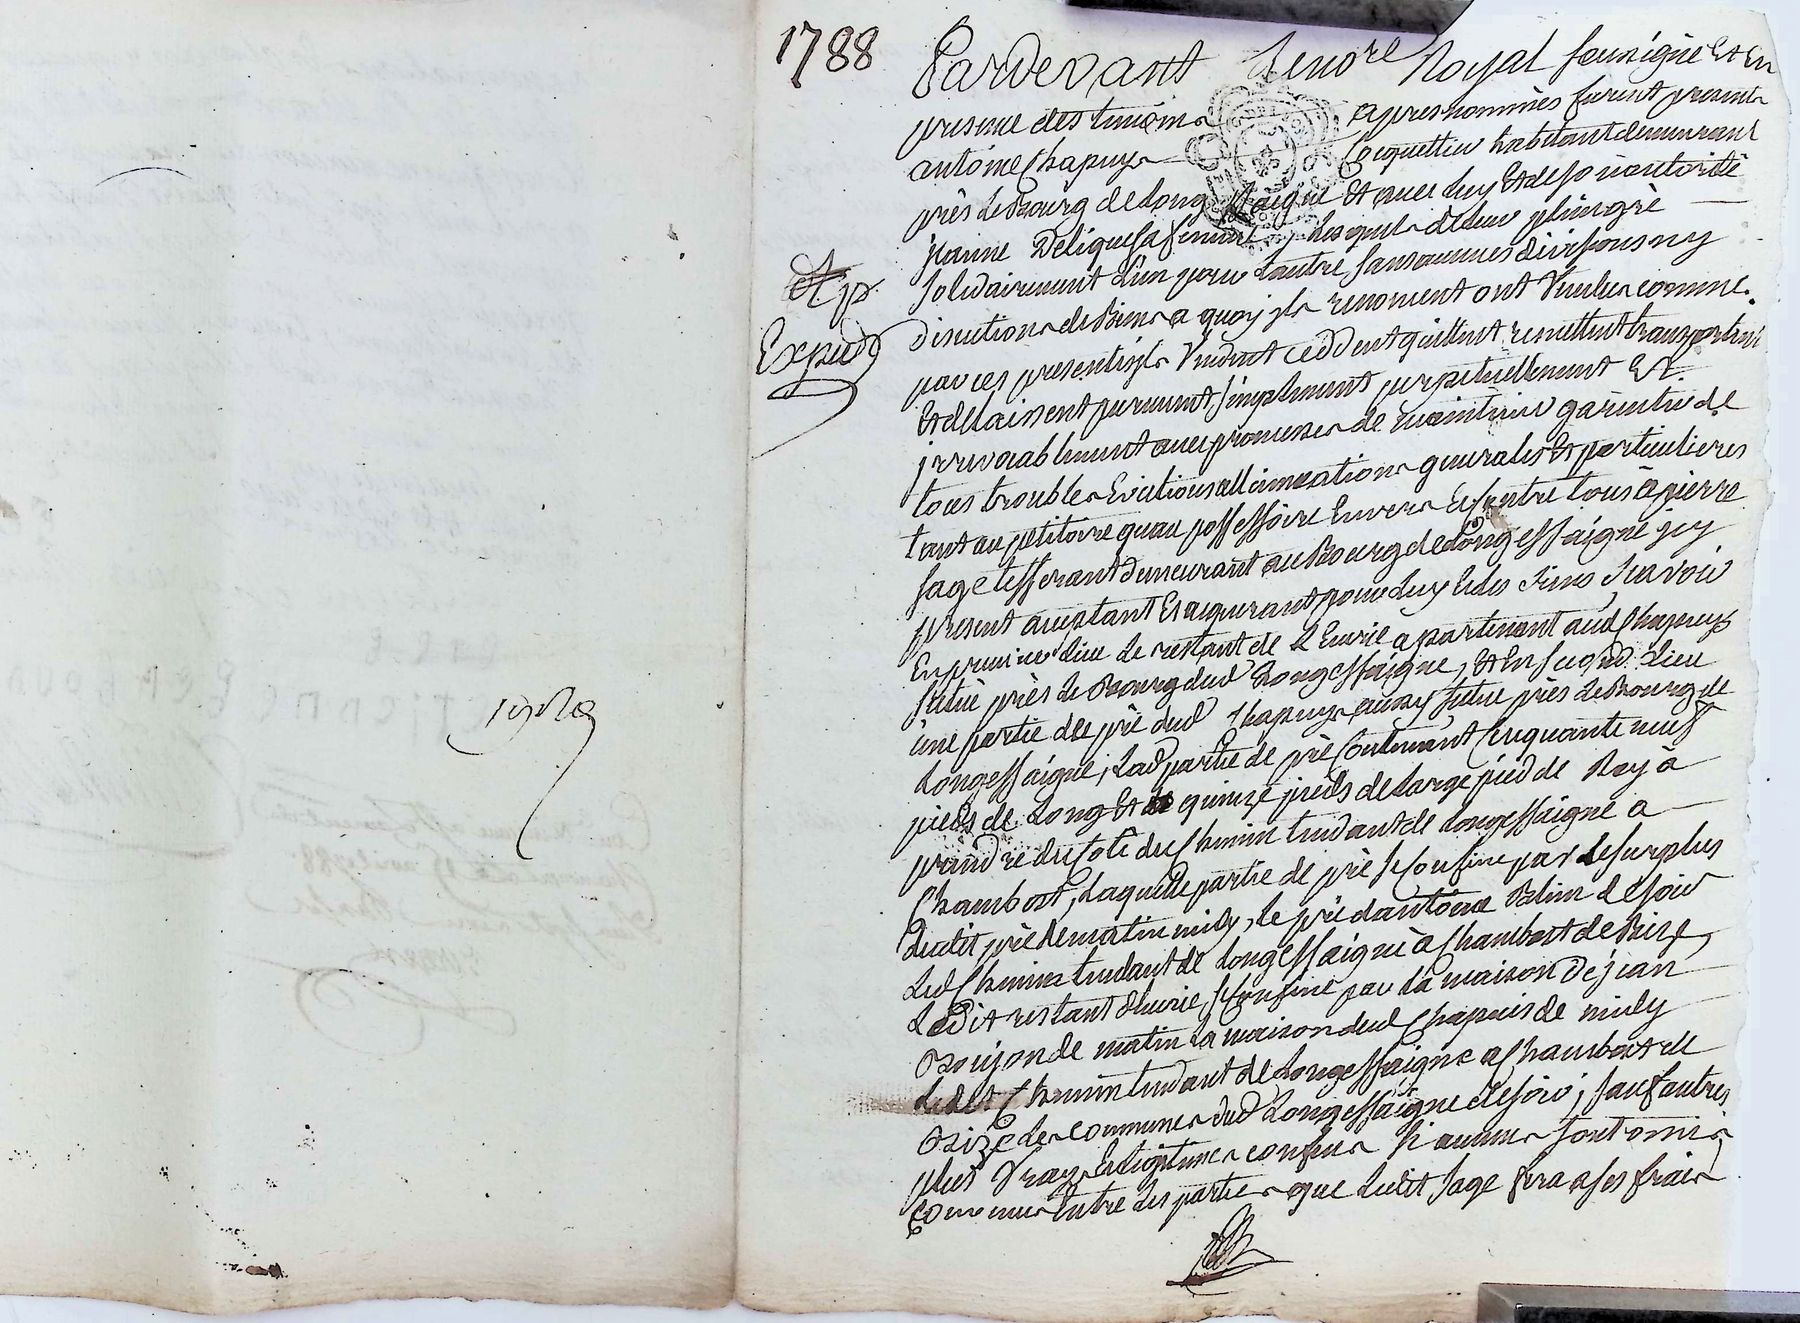 1788
Pardevant le no.re Royal soussigné Et En
presence des temoins apres nommés furent presents
antoine Chapuys Coquetier habitant demeurant
près le Bourg de Longessaigne Et avec luy Et de son autorité
jeanne Delique sa femme, Lesquels de leur plein gré
solidairement L'un pour Lautre sans aucunes divisions ny
discution de Biens a quoy jls renoncent ont Vendu comme
par ces presentes jls Vendent ceddent quittent remettent transportent
Et delaissent purement, simplement perpetuellement Et
jrrevocablement avec promesse de maintenir garentir de
tous troubles Evictions allienations generales Et particulieres
tant au petitoire quau possessoire Envers Et Contre tous à pierre
sage tisserant demeurant au Bourg de Longessaigne jcy
present acceptant Et aquerant pour Luy Et les siens, scavoir
En premier lieu le restant de L'Ecurie apartenant aud Chapuys
situé près le Bourg dud Longessaigne, Et En second Lieu
une partie de pré dud Chapuys aussy situé près le Bourg de
Longessaigne, Lad partie de pré Contenant Cinquante neuf
pieds de Long Et quinze pieds de Large pied de Roy à
prendre du Coté du Chemin tendant de Longessaigne a
Chambost, Laquelle partie de pré se Confine par le surplus
dudit pré de matin midy, le pré dantoine Blin de soir
Led Chemin tendant de Longessaigne à Chambost de Bize,
Ledit restant d'Ecurie, se Confine par la maison de jean
Boujon de matin La maison dud Chapuis de midy
Ledit Chemin tendant de Longessaigne a Chambost de
Bize les communes dud Longessaigne de soir; sauf autres
plus Vrays Et legitimes confins si aucuns sont omis
Convenu Entre Les parties que Ledit sage fera a ses frais
Exped